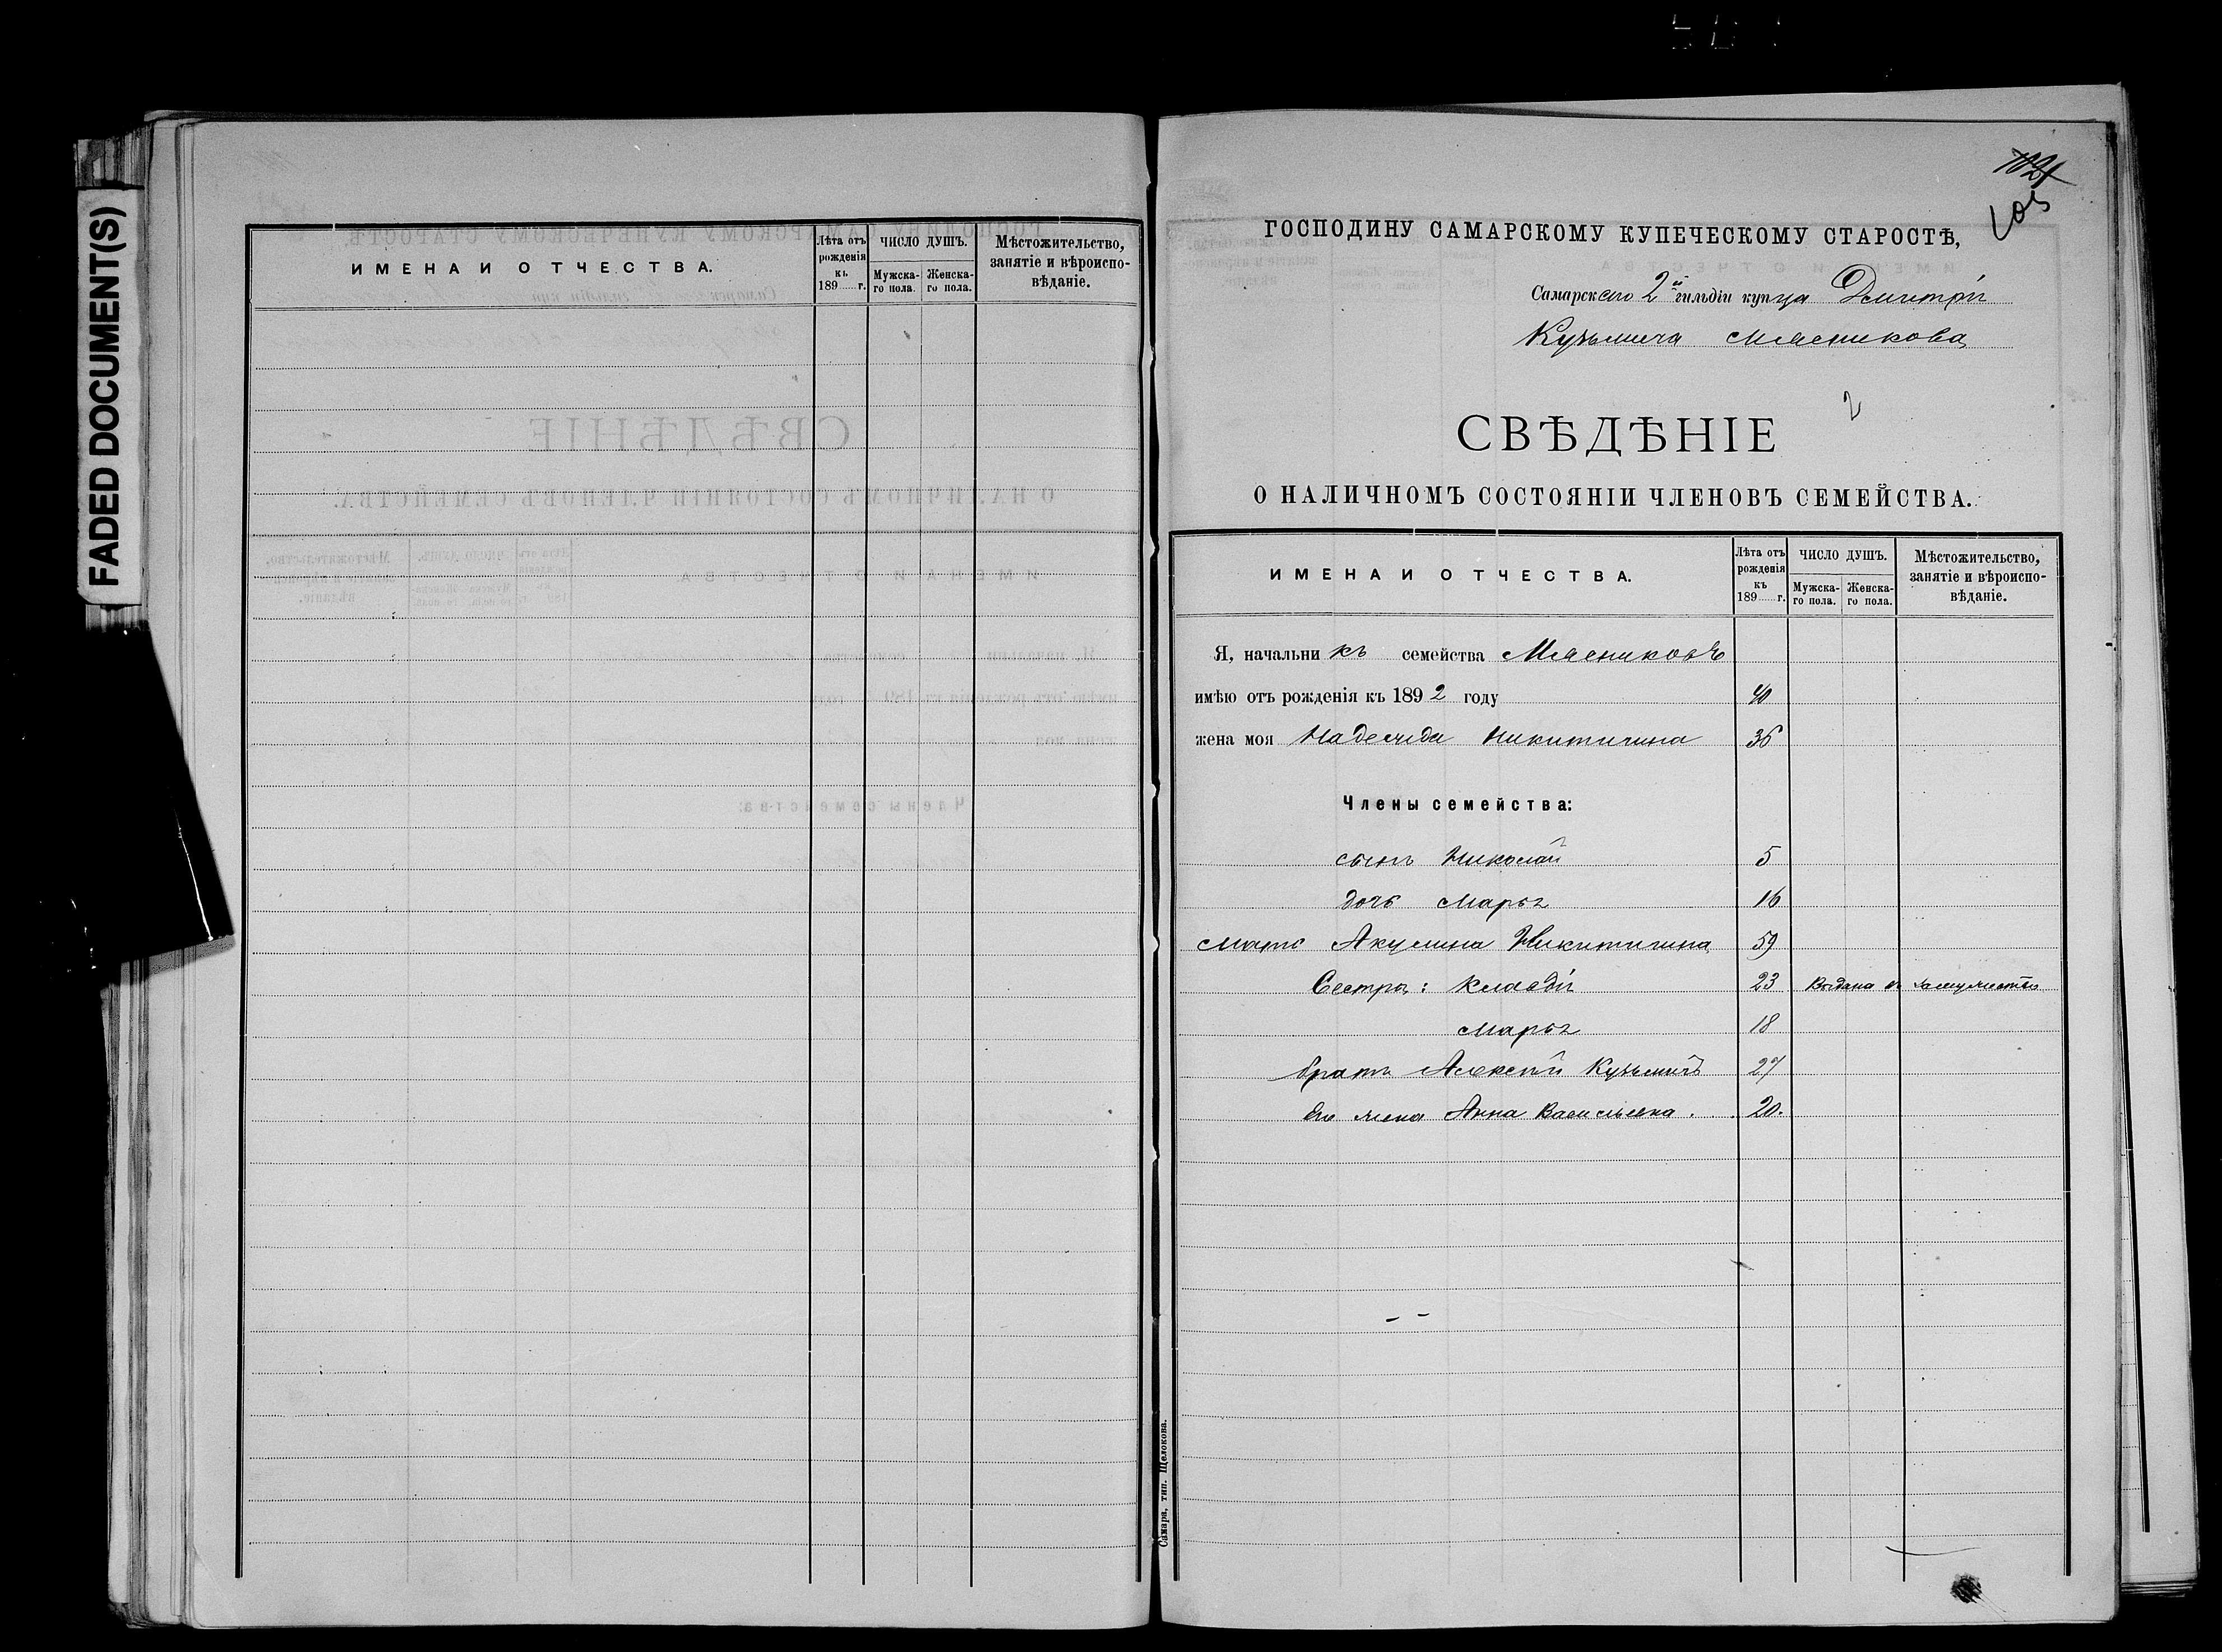 FADED DOCUMENT(S)
ИМЕНА И ОТЧЕСТВА.
Лѣта отъ рожденія къ 189 г.
ЧИСЛО ДУШЪ.
Мужска-го пола.
Женска-го пола.
Мѣстожительство, занятіе и вѣроиспо-вѣданіе.
105
ГОСПОДИНУ САМАРСКОМУ КУПЕЧЕСКОМУ СТАРОСТѢ,
Самарскаго 2й гильдіи купца Дмитрія
Кузьмича Мясникова
2
СВѢДѢНІЕ
О НАЛИЧНОМЪ СОСТОЯНІИ ЧЛЕНОВЪ СЕМЕЙСТВА.
ИМЕНА И ОТЧЕСТВА.
Лѣта отъ рожденія къ 189 г.
ЧИСЛО ДУШЪ.
Мужска-го пола.
Женска-го пола.
Мѣстожительство, занятіе и вѣроиспо-вѣданіе.
Я, начальникъ семейства Мясниковъ
имѣю отъ рожденія къ 1892 году 40
жена моя Надежда Никитична 36
Члены семейства:
сынъ Николай 5
дочь Марья 16
мать Акулина Никитична 59
Сестры: Клавдія 23 Выдана в замужество
Марья 18
братъ Алексѣй Кузьмичъ 27
Его жена Анна Васильевна . . 20.
Самара, тип. Щелокова.